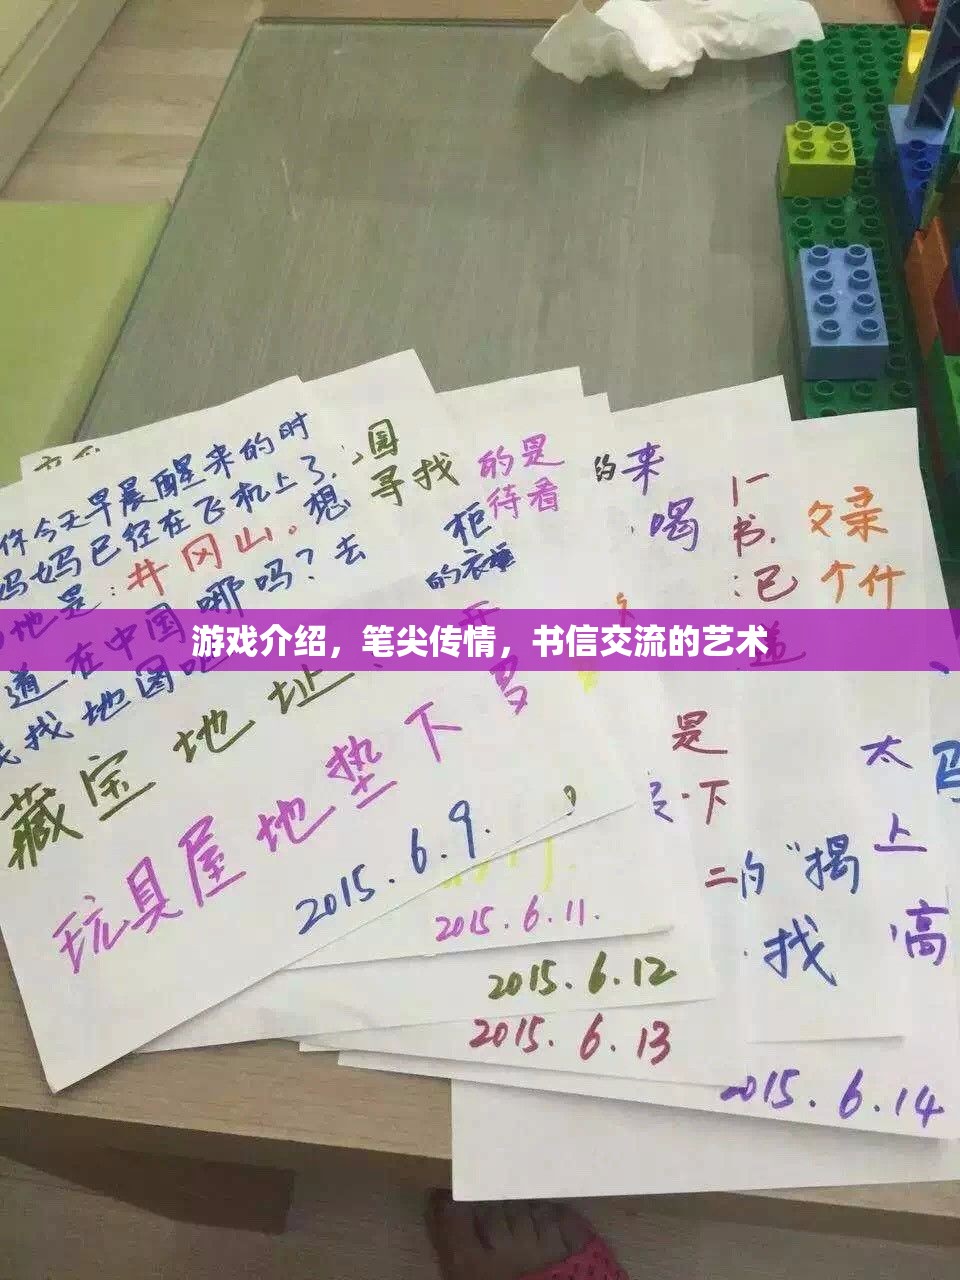 你今天早晨醒来的时
妈妈已经在飞机上了.
地是:井冈山。想
道在中国哪吗?去
找找地图吧
藏宝地址:
玩具屋地垫下
2015.6.9.
国
寻找
的是
待看
柜
的衣
开
多
2015.6.11.
2015.6.12
的来
喝
2015.6.13
书.
:已
道
是
下
二的"揭
找
文录
个什
2015.6.14
太
马
上
高
游戏介绍，笔尖传情，书信交流的艺术